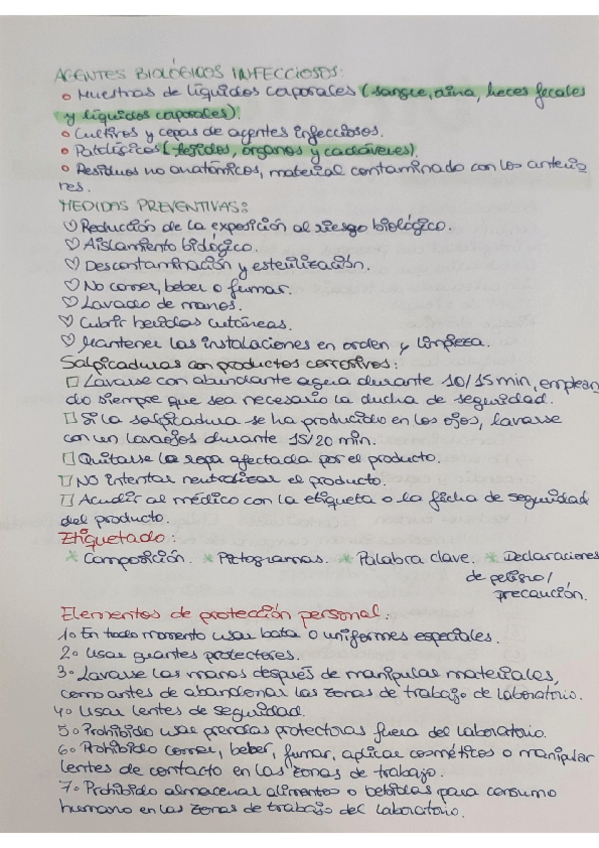 AGENTES BIOLÓGICOS INFECCIOSOS:
○ Muestras de líquidos corporales (sangre, orina, heces fecales
y líquidos corporales).
○ Cultivos y cepas de agentes infecciosos.
○ Patológicos (tejidos, organos y cadáveres).
○ Residuos no anatómicos, material contaminado con los anterio
res.
MEDIDAS PREVENTIVAS:
♡ Reducción de la exposición al riesgo biológico.
♡ Aislamiento biológico.
♡ Descontaminación y esterilización.
♡ No comer, beber o fumar.
♡ Lavado de manos.
♡ Cubrir heridas cutáneas.
♡ Mantener las instalaciones en orden y limpieza.
Salpicaduras con productos corrosivos:
□ Lavarse con abundante agua durante 10/15 min, emplean
do siempre que sea necesario la ducha de seguridad.
□ Si la salpicadura se ha producido en los ojos, lavarse
con un lavaojos durante 15/20 min.
□ Quitarse la ropa afectada por el producto.
□ NO intentar neutralizar el producto.
□ Acudir al médico con la etiqueta o la ficha de seguridad
del producto.
Etiquetado:
* Composición. * Pictogramas. * Palabra clave. * Declaraciones
de peligro/
precaución.
Elementos de protección personal.
1º En todo momento usar bata o uniformes especiales.
2º Usar guantes protectores.
3º Lavarse las manos después de manipular materiales,
como antes de abandonar las zonas de trabajo de laboratorio.
4º Usar lentes de seguridad.
5º Prohibido usar prendas protectoras fuera del laboratorio.
6º Prohibido comer, beber, fumar, aplicar cosméticos o manipular
lentes de contacto en las zonas de trabajo.
7º Prohibido almacenar alimentos o bebidas para consumo
humano en las zonas de trabajo del laboratorio.